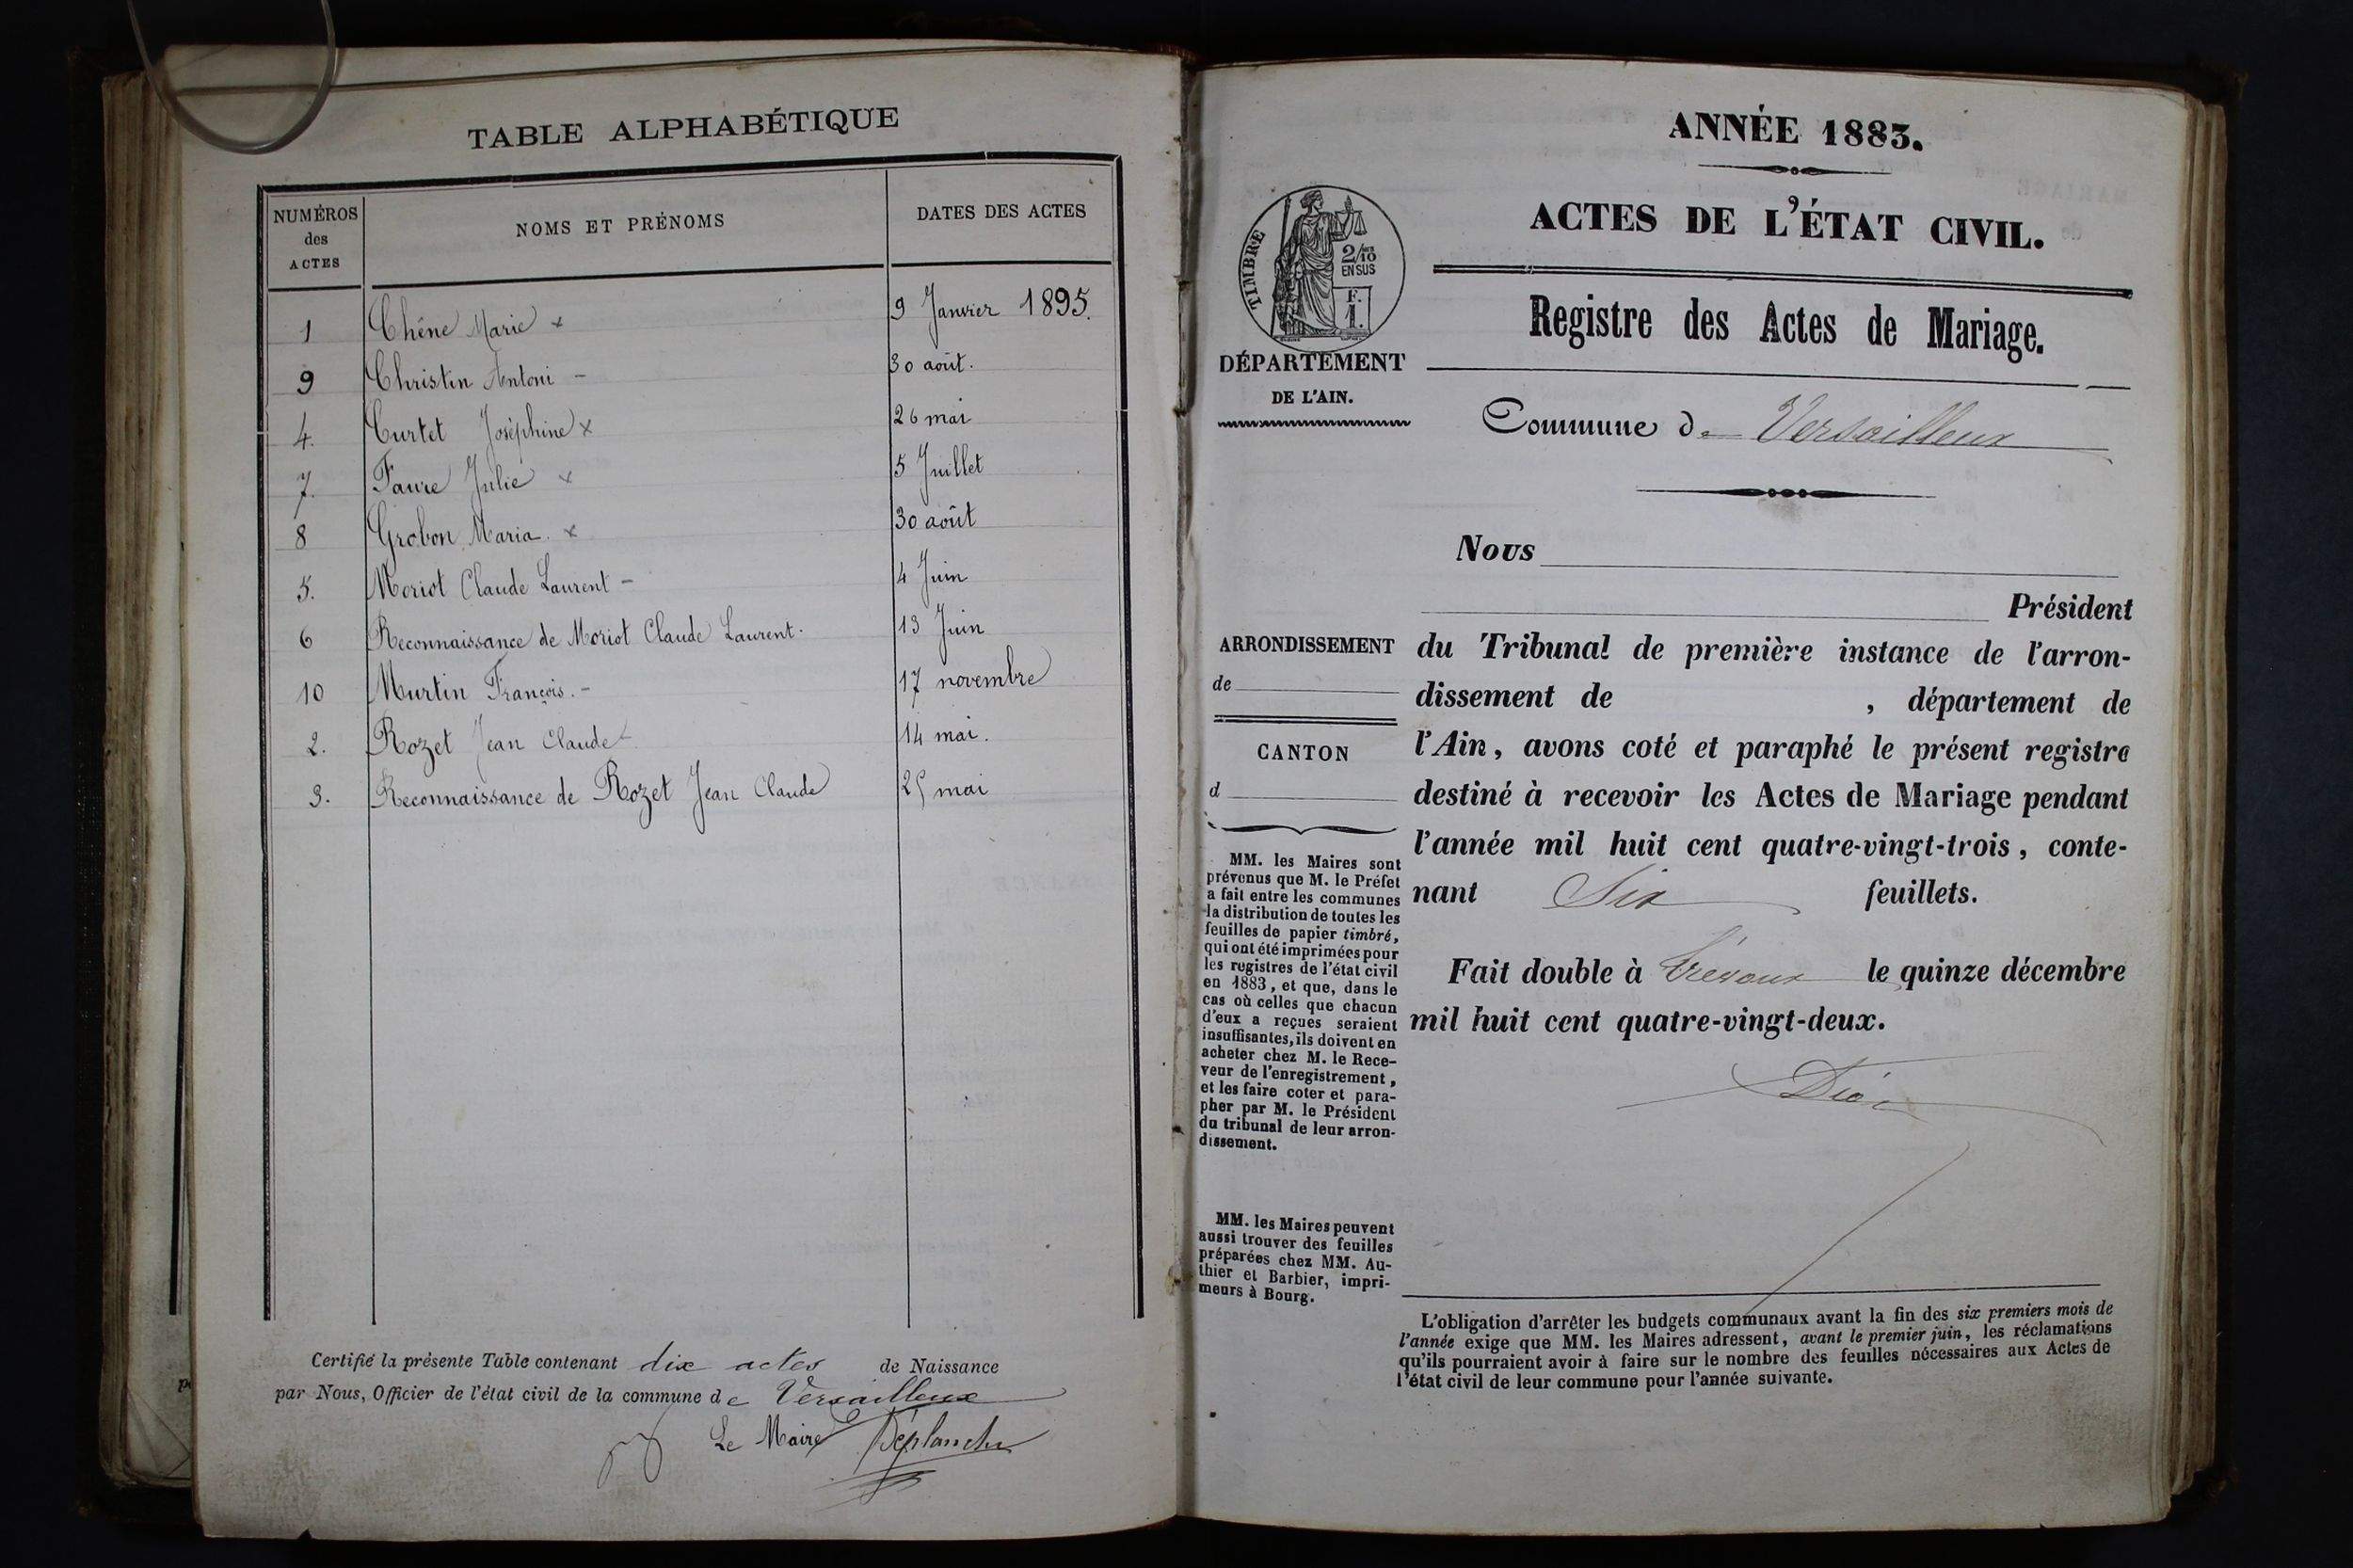 TABLE ALPHABÉTIQUE
NUMÉROS des ACTES NOMS ET PRÉNOMS DATES DES ACTES
1 Chêne Marie x 9 Janvier 1895.
9 Christin Antoni - 30 août.
4. Curtet Joséphine x 26 mai
7. Faure Julie x 5 Juillet
8 Grobon Maria. x 30 août
5. Moriot Claude Laurent - 4 Juin
6 Reconnaissance de Moriot Claude Laurent. 13 Juin
10 Murtin François. - 17 novembre
2. Rozet Jean Claude 14 mai.
3. Reconnaissance de Rozet Jean Claude 25 mai
Certifié la présente Table contenant dix actes de Naissance
par Nous, Officier de l'état civil de la commune de Versailleux
Le Maire Déplanche
ANNÉE 1883.
ACTES DE L'ÉTAT CIVIL.
TIMBRE
2/10
EN SUS
F.
1.
Registre des Actes de Mariage.
DÉPARTEMENT
DE L'AIN.
Commune de Versailleux
Nous
Président
ARRONDISSEMENT
de
CANTON
d
du Tribunal de première instance de l'arron-
dissement de , département de
l'Ain, avons coté et paraphé le présent registre
destiné à recevoir les Actes de Mariage pendant
l'année mil huit cent quatre-vingt-trois, conte-
nant Six feuillets.
Fait double à Trévoux le quinze décembre
mil huit cent quatre-vingt-deux.
MM. les Maires sont
prévenus que M. le Préfet
a fait entre les communes
la distribution de toutes les
feuilles de papier timbré,
qui ont été imprimées pour
les registres de l'état civil
en 1883, et que, dans le
cas où celles que chacun
d'eux a reçues seraient
insuffisantes, ils doivent en
acheter chez M. le Rece-
veur de l'enregistrement,
et les faire coter et para-
pher par M. le Président
du tribunal de leur arron-
dissement.
MM. les Maires peuvent
aussi trouver des feuilles
préparées chez MM. Au-
thier et Barbier, impri-
meurs à Bourg.
L'obligation d'arrêter les budgets communaux avant la fin des six premiers mois de
l'année exige que MM. les Maires adressent, avant le premier juin, les réclamations
qu'ils pourraient avoir à faire sur le nombre des feuilles nécessaires aux Actes de
l'état civil de leur commune pour l'année suivante.